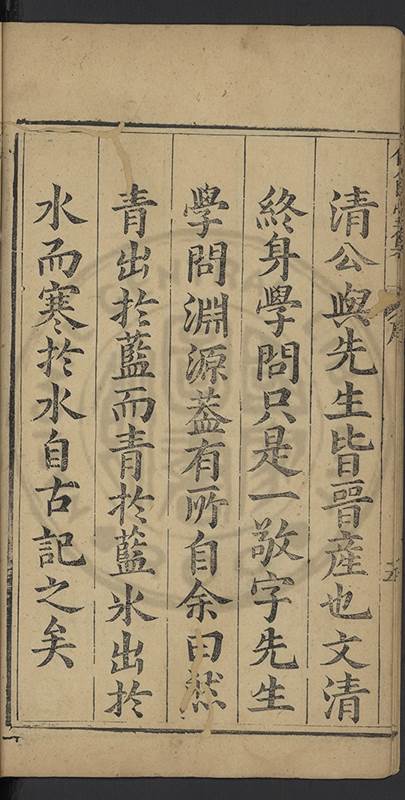 清公與先生皆晉產也文清
終身學問只是一敬字先生
學問淵源葢有所自余曰然
青出於藍而青於藍氷出於
水而寒於水自古記之矣